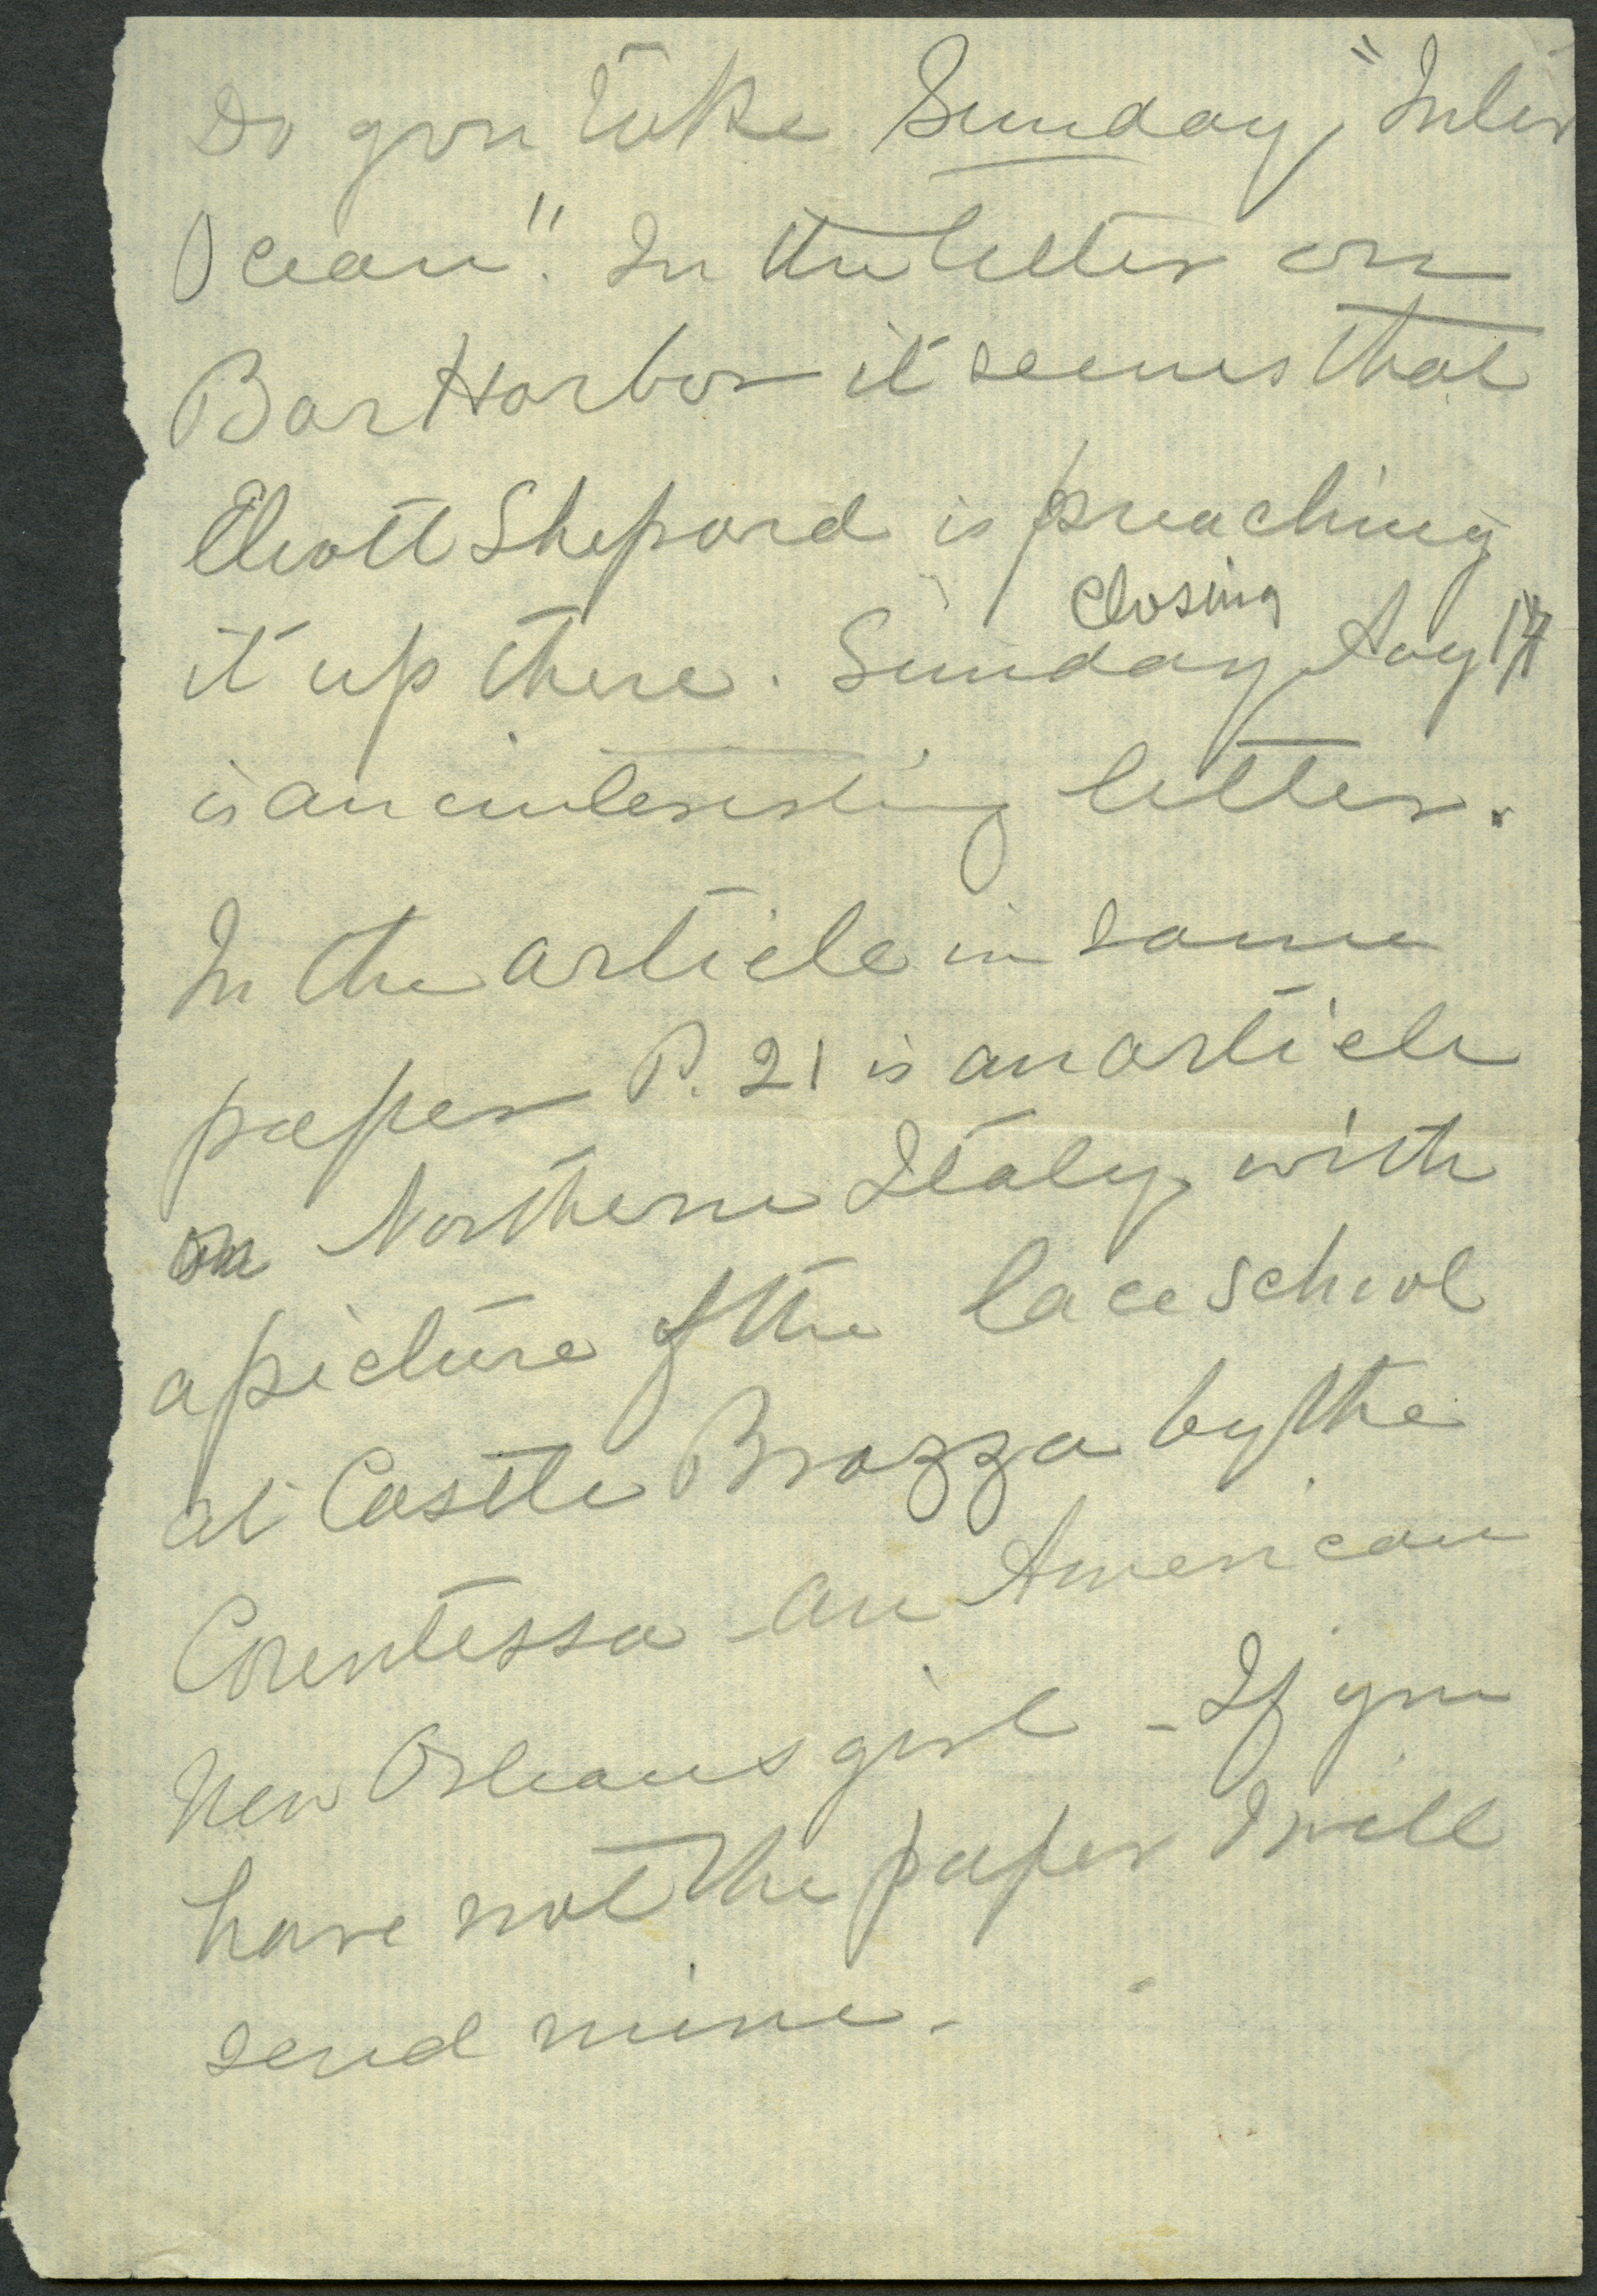 Do you take Sunday, "Inter
Ocean". In the letter on
Bar Harbor it seems that
Eliott Shepard is preaching
closing
it up there. Sunday Aug 17
is an interesting letter.
In the article in same
paper P. 21 is an article
on Northern Italy with
a picture of the lace school
at Castle Brazza by the
Countessa - an American
New Orleans girl - If you
have not the paper I will
send mine -